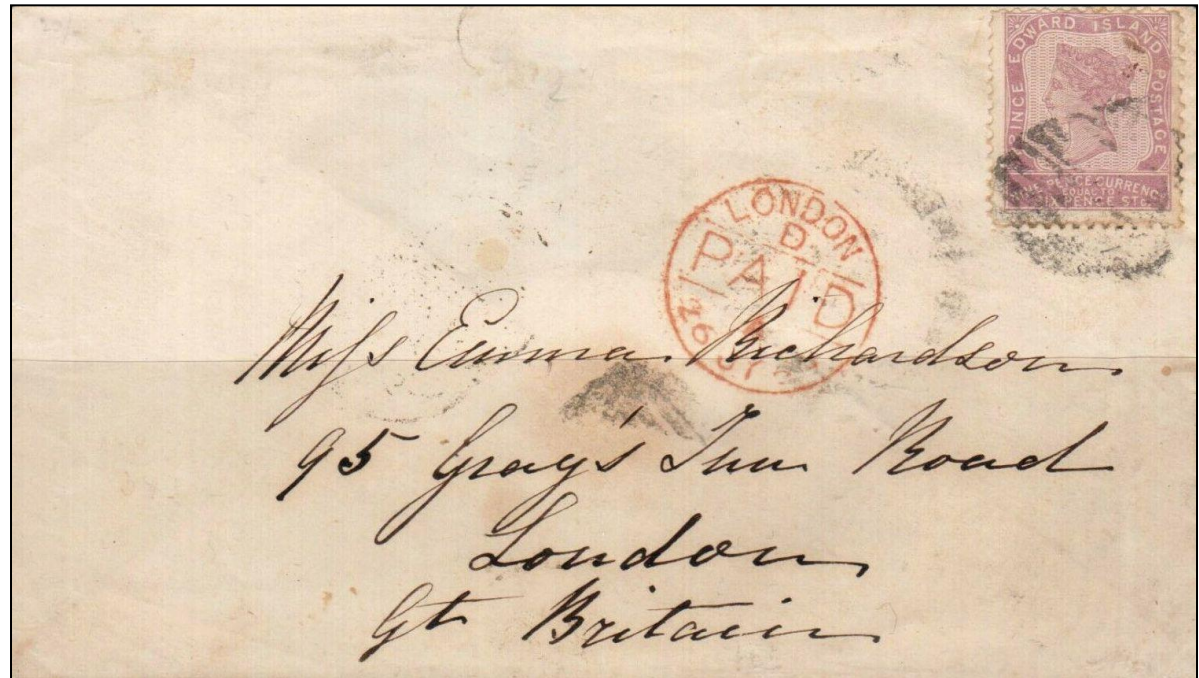 PRINCE EDWARD ISLAND POSTAGE
PENCE CURRENCY
EQUAL TO
SIX PENCE STG
LONDON
D
PAID
26
Miss Emma Richardson
95 Gray's Inn Road
London
Gt Britain